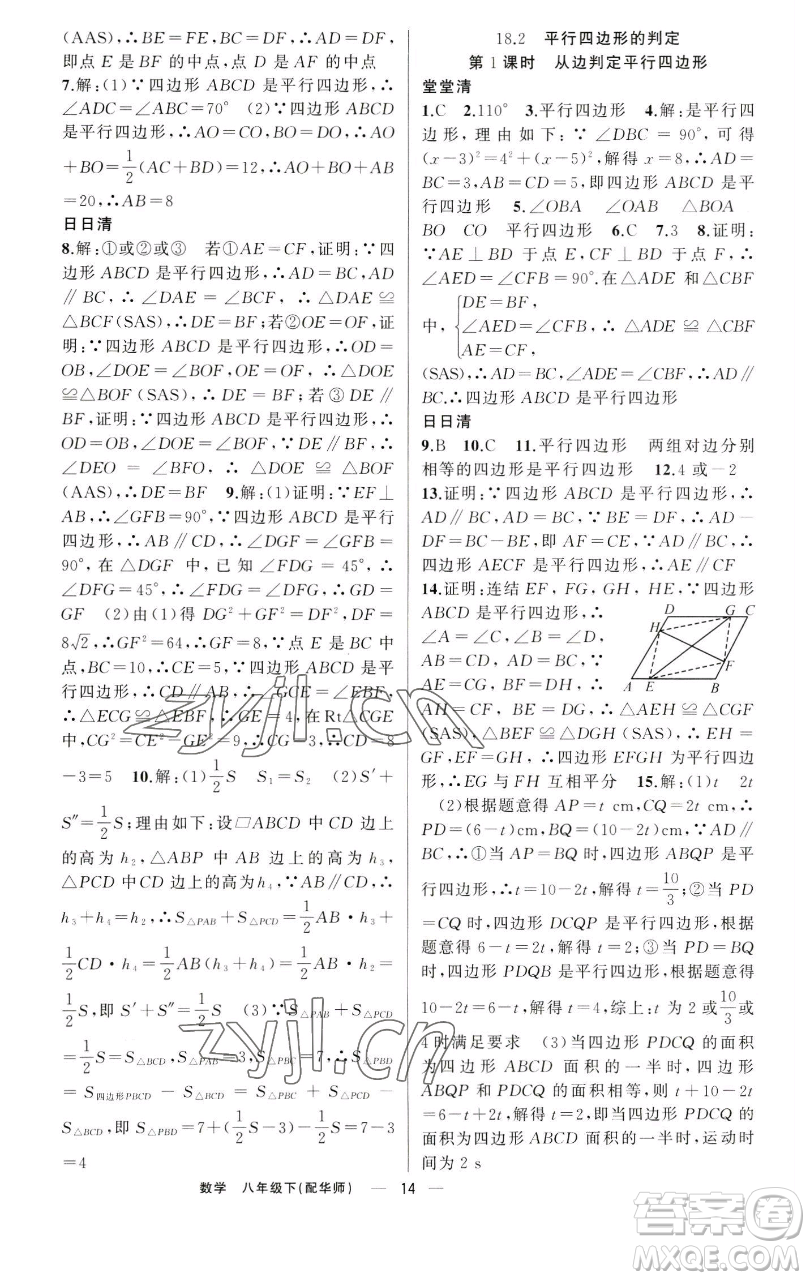 (AAS),∴BE=FE,BG=DG,∴DE=AF,
即点 E 是 BF 的中点,点 D 是 AF 的中点
7.解:(1)∵四边形 ABCD 是平行四边形,∴
∠ADC=∠ABC=70° (2)∵四边形 ABCD
是平行四边形,∴AO=CO,BO=DO,∴AO
+BO=1/2(AC+BD)=12,∴AO+BO+AB
=20,∴AB=8
日日清
8.解:①或②或③ 若①AE=CF,证明:∵四
边形 ABCD 是平行四边形,∴AD=BC,AD
∥BC,∴∠DAE=∠BCF,∴△DAE≌
△BCF(SAS),∴DE=BF;若②OE=OF,证
明:∵四边形 ABCD 是平行四边形,∴OD=
OB,∠DOE=∠BOF,∴△DOE
≌△BOF(SAS),∴DE=BF;若③DE∥
BF,证明:∵四边形 ABCD 是平行四边形,∴
OD=OB,∠DOE=∠BOF,∵DE∥BF,∴
∠DEO=∠BFO,∴△DOE≌△BOF
(AAS),∴DE=BF 9.解:(1)证明:∵EF⊥
AB,∴∠GFB=90°,∵四边形 ABCD 是平行
四边形,∴AB∥CD,∴∠DGF=∠GFB=
90°,在△DGF 中,已知∠GDF=45°,∴
∠DFG=45°,∴∠GDF=∠DFG,∴GD=
GF (2)由(1)得 DG²+GF²=DF²,DF=
8√2,∴GF²=64,∴GF=8,∵点 E 是 BC 中
点,BC=10,∴CE=5,∵四边形 ABCD 是平
行四边形,∴CD∥AB,∴∠GCE=∠EBF,
∴△ECG≌△EBF,∴GE=4,在Rt△CGE
中,CG²=CE²-GE²=9,∴CG=3,∴CD=8
-3=5 10.解:(1)1/2S S₁=S₂ (2)S′+
S″=1/2S;理由如下:设□ABCD 中 CD 边上
的高为 h₂,△ABP 中 AB 边上的高为 h₃,
△PCD 中 CD 边上的高为 h₄,∵AB∥CD,∴
h₃+h₄=h₂,∴S△PAB+S△PCD=1/2AB·h₃+
1/2CD·h₄=1/2AB(h₃+h₄)=1/2AB·h₂=
1/2S,即 S′+S″=1/2S (3)∵S△PAB+S△PCD
=1/2S=S△BCD,S△PAB=3,S△PBC=7,∴S△PBD
=S四边形PBCD-S△BCD=S△PBC+S△PCD-
S△BCD,即 S△PBD=7+(1/2S-3)-1/2S=7-3
=4
18.2 平行四边形的判定
第 1 课时 从边判定平行四边形
堂堂清
1.C 2.110° 3.平行四边形 4.解:是平行四
边形,理由如下:∵∠DBC=90°,可得
(x-3)²=4²+(x-5)²,解得 x=8,∴AD=
BC=3,AB=CD=5,即四边形 ABCD 是平
行四边形 5.∠OBA ∠OAB △BOA
BO CO 平行四边形 6.C 7.3 8.证明:
∵AE⊥BD 于点 E,CF⊥BD 于点 F,∴
∠AED=∠CFB=90°.在△ADE 和△CBF
中,{DE=BF,
∠AED=∠CFB,∴△ADE≌△CBF
AE=CF,
(SAS),∴AD=BC,∠ADE=∠CBF,∴AD∥
BC.∴四边形 ABCD 是平行四边形
日日清
9.B 10.C 11.平行四边形 两组对边分别
相等的四边形是平行四边形 12.4 或-2
13.证明:∵四边形 ABCD 是平行四边形,∴
AD∥BC,AD=BC,∵BE=DF,∴AD-
DF=BC-BE,即 AF=CE,∵AD∥BC,∴
四边形 AECF 是平行四边形,∴AE∥CF
14.证明:连结 EF,FG,GH,HE,∵四边形
ABCD 是平行四边形,∴
∠A=∠C,∠B=∠D,
AB=CD,AD=CB,∵
AE=CG,BF=DH,∴
AH=CF,BE=DG,∴△AEH≌△CGF
(SAS),△BEF≌△DGH(SAS),∴EH=
GF,GH=EF,∴四边形 EFGH 为平行四边
形,∴EG 与 FH 互相平分 15.解:(1)t 2t
(2)根据题意得 AP=t cm,CQ=2t cm,∴
PD=(6-t)cm,BQ=(10-2t)cm,∵AD∥
BC,∴①当 AP=BQ 时,四边形 ABQP 是平
行四边形,∴t=10-2t,解得 t=10/3;②当 PD
=CQ 时,四边形 DCQP 是平行四边形,根据
题意得 6-t=2t,解得 t=2;③当 PD=BQ
时,四边形 PDQB 是平行四边形,根据题意得
10-2t=6-t,解得 t=4,综上:t 为 2 或10/3或
4 时满足要求 (3)当四边形 PDCQ 的面积
为四边形 ABCD 面积的一半时,四边形
ABQP 和 PDCQ 的面积相等,则 t+10-2t
=6-t+2t,解得 t=2,∴当四边形 PDCQ 的
面积为四边形 ABCD 面积的一半时,运动时
间为 2 s
D G C
H
F
A E B
数学 八年级下(配华师) — 14 —
zyjl.cn
zyjl.cn
答案圈
MXQE.COM